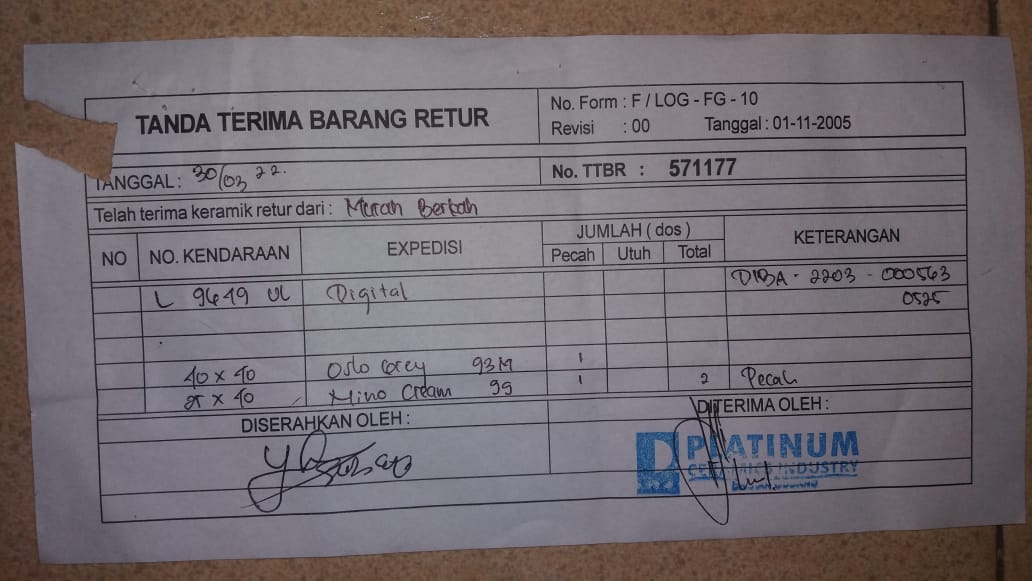 TANDA TERIMA BARANG RETUR
No. Form : F / LOG - FG - 10
Revisi : 00 Tanggal : 01-11-2005
TANGGAL : 30/03 22.
No. TTBR : 571177
Telah terima keramik retur dari : Murah Berkah
NO NO. KENDARAAN EXPEDISI JUMLAH ( dos ) KETERANGAN
Pecah Utuh Total
L 9649 UL Digital DIBA - 2203 - 000563
0525
40 x 40 Oslo Grey 93M 1
25 x 40 Mino Cream 99 1 2 Pecah
DISERAHKAN OLEH : DITERIMA OLEH :
PLATINUM
CERAMICS INDUSTRY